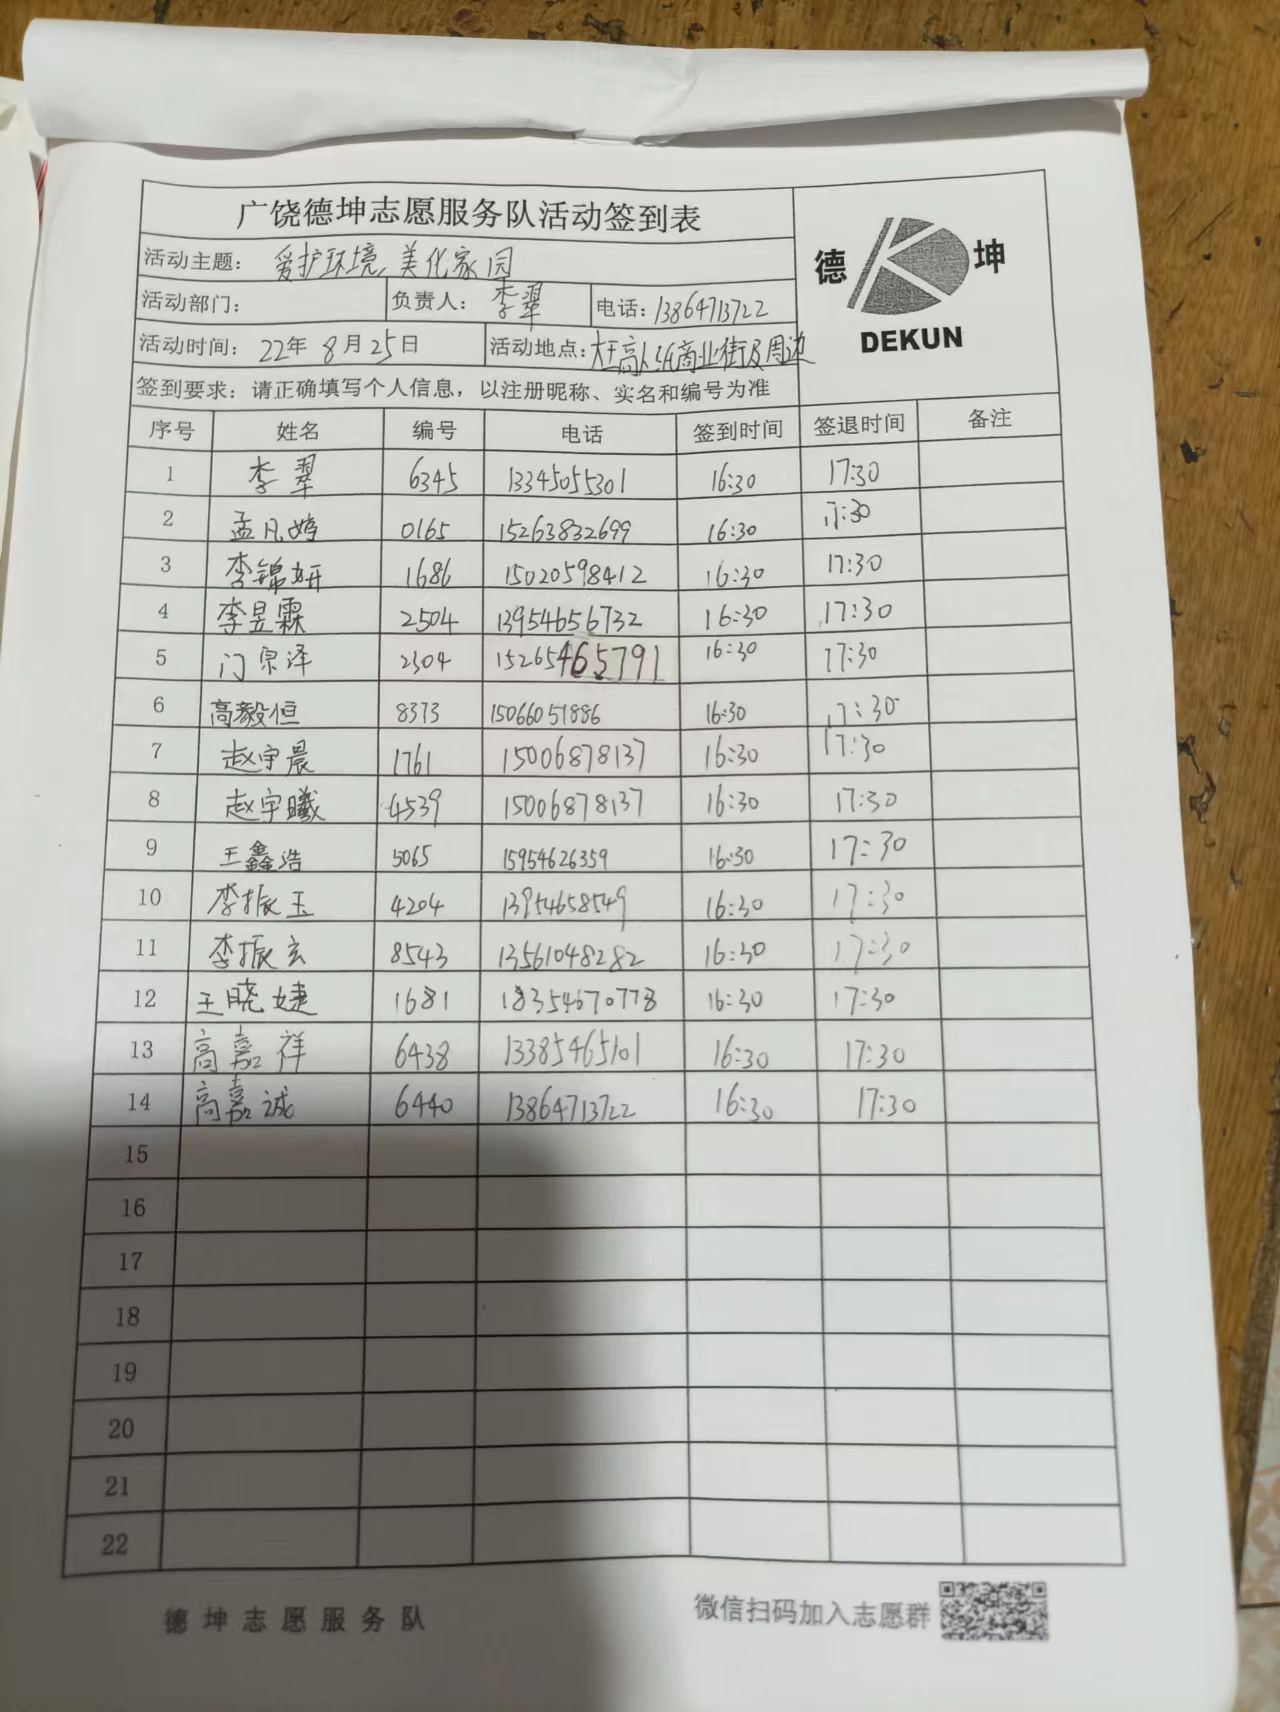 广饶德坤志愿服务队活动签到表
德 坤
DEKUN
活动主题: 爱护环境,美化家园
活动部门: 负责人: 李翠 电话: 13864713722
活动时间: 22年 8月25日 活动地点: 大王高人纸商业街及周边
签到要求: 请正确填写个人信息, 以注册昵称、实名和编号为准
序号 姓名 编号 电话 签到时间 签退时间 备注
1 李翠 6345 13345055301 16:30 17:30
2 孟凡婷 0165 15263832699 16:30 17:30
3 李锦妍 1686 15020598412 16:30 17:30
4 李昱霖 2504 13954656732 16:30 17:30
5 门宗泽 2304 15265465791 16:30 17:30
6 高毅恒 8373 15066051886 16:30 17:30
7 赵宇晨 1761 15006878137 16:30 17:30
8 赵宇曦 4539 15006878137 16:30 17:30
9 王鑫浩 5065 15954626359 16:30 17:30
10 李振玉 4204 13954658549 16:30 17:30
11 李振玄 8543 13561048282 16:30 17:30
12 王晓婕 1681 18354670778 16:30 17:30
13 高嘉祥 6438 13385465101 16:30 17:30
14 高嘉诚 6440 13864713722 16:30 17:30
15
16
17
18
19
20
21
22
德坤志愿服务队 微信扫码加入志愿群